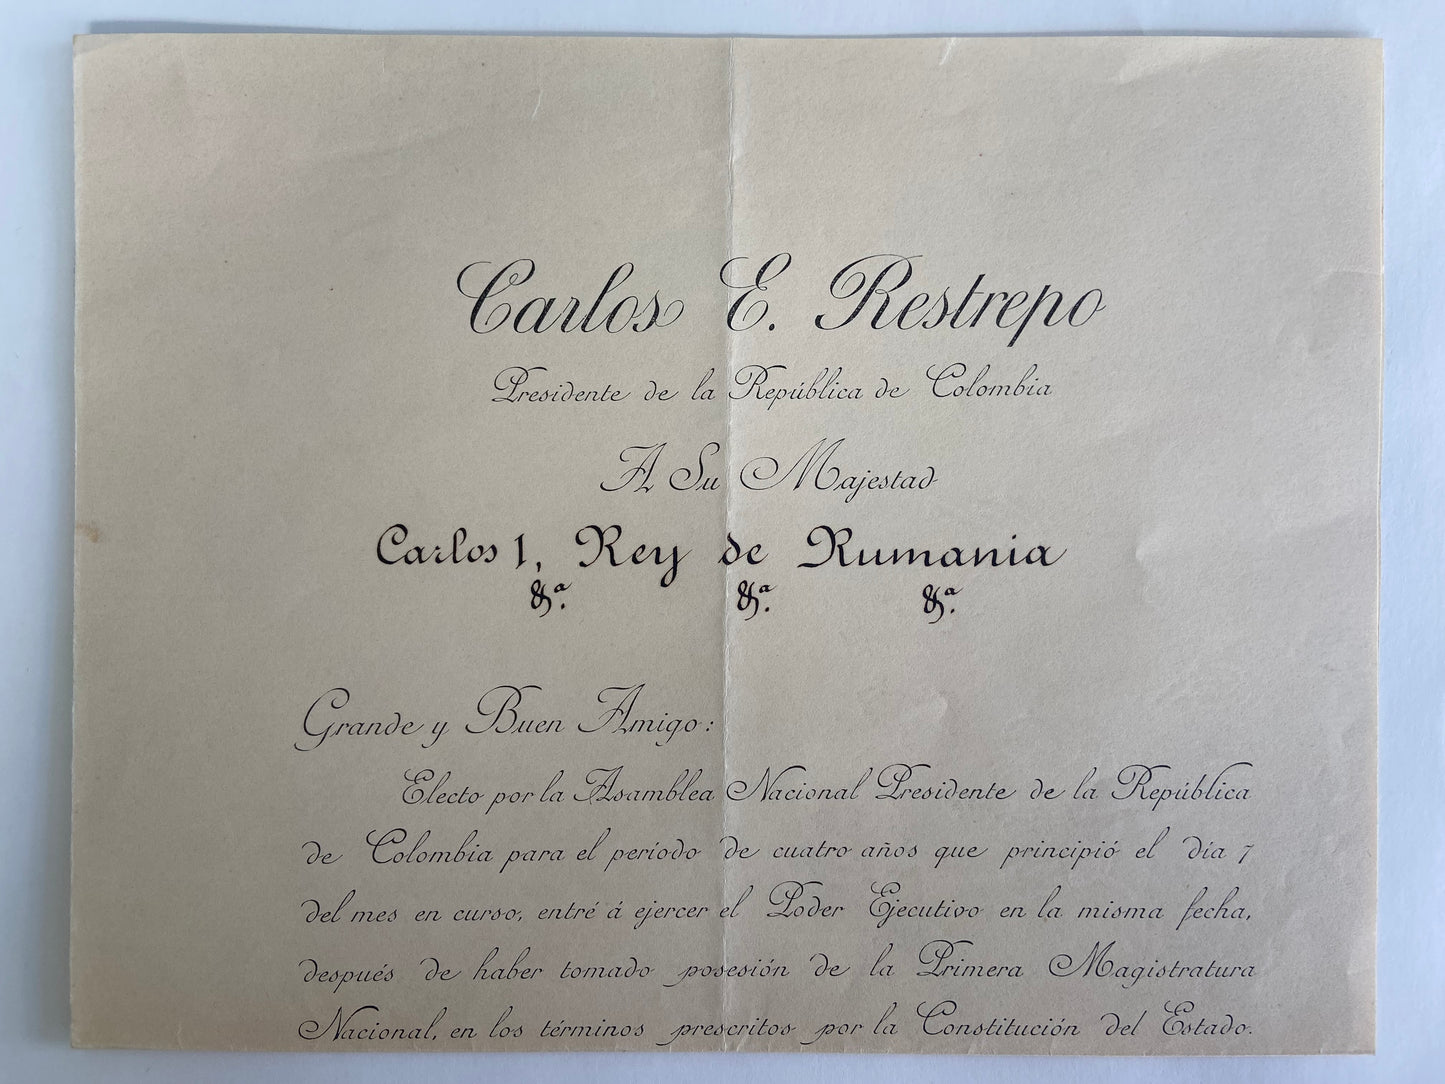 Carlos E. Restrepo
Presidente de la República de Colombia
A Su Majestad
Carlos 1, Rey de Rumania
&ª. &ª. &ª.
Grande y Buen Amigo:
Electo por la Asamblea Nacional Presidente de la República
de Colombia para el período de cuatro años que principió el día 7
del mes en curso, entré á ejercer el Poder Ejecutivo en la misma fecha,
después de haber tomado posesión de la Primera Magistratura
Nacional, en los términos prescritos por la Constitución del Estado.